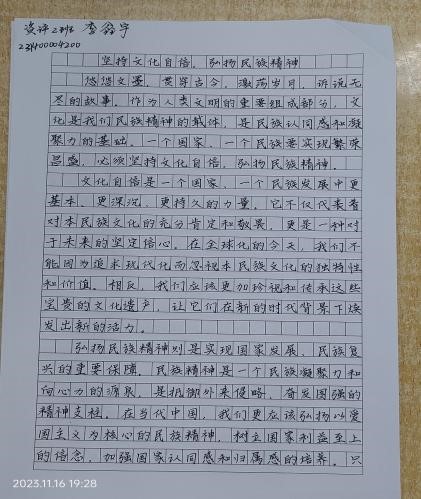 资评2班 李鑫宇
23400004200
坚持文化自信，弘扬民族精神
悠悠文墨，贯穿古今，激荡岁月，诉说无
尽的故事。作为人类文明的重要组成部分，文
化是我们民族精神的载体，是民族认同感和凝
聚力的基础。一个国家、一个民族要实现繁荣
昌盛，必须坚持文化自信，弘扬民族精神。
文化自信是一个国家、一个民族发展中更
基本、更深沉、更持久的力量。它不仅代表着
对本民族文化的充分肯定和敬畏，更是一种对
于未来的坚定信心。在全球化的今天，我们不
能因为追求现代化而忽视本民族文化的独特性
和价值。相反，我们应该更加珍视和传承这些
宝贵的文化遗产，让它们在新的时代背景下焕
发出新的活力。
弘扬民族精神则是实现国家发展、民族复
兴的重要保障。民族精神是一个民族凝聚力和
向心力的源泉，是抵御外来侵略、奋发图强的
精神支柱。在当代中国，我们更应该弘扬以爱
国主义为核心的民族精神，树立国家利益至上
的信念，加强国家认同感和归属感的培养。只
2023.11.16 19:28